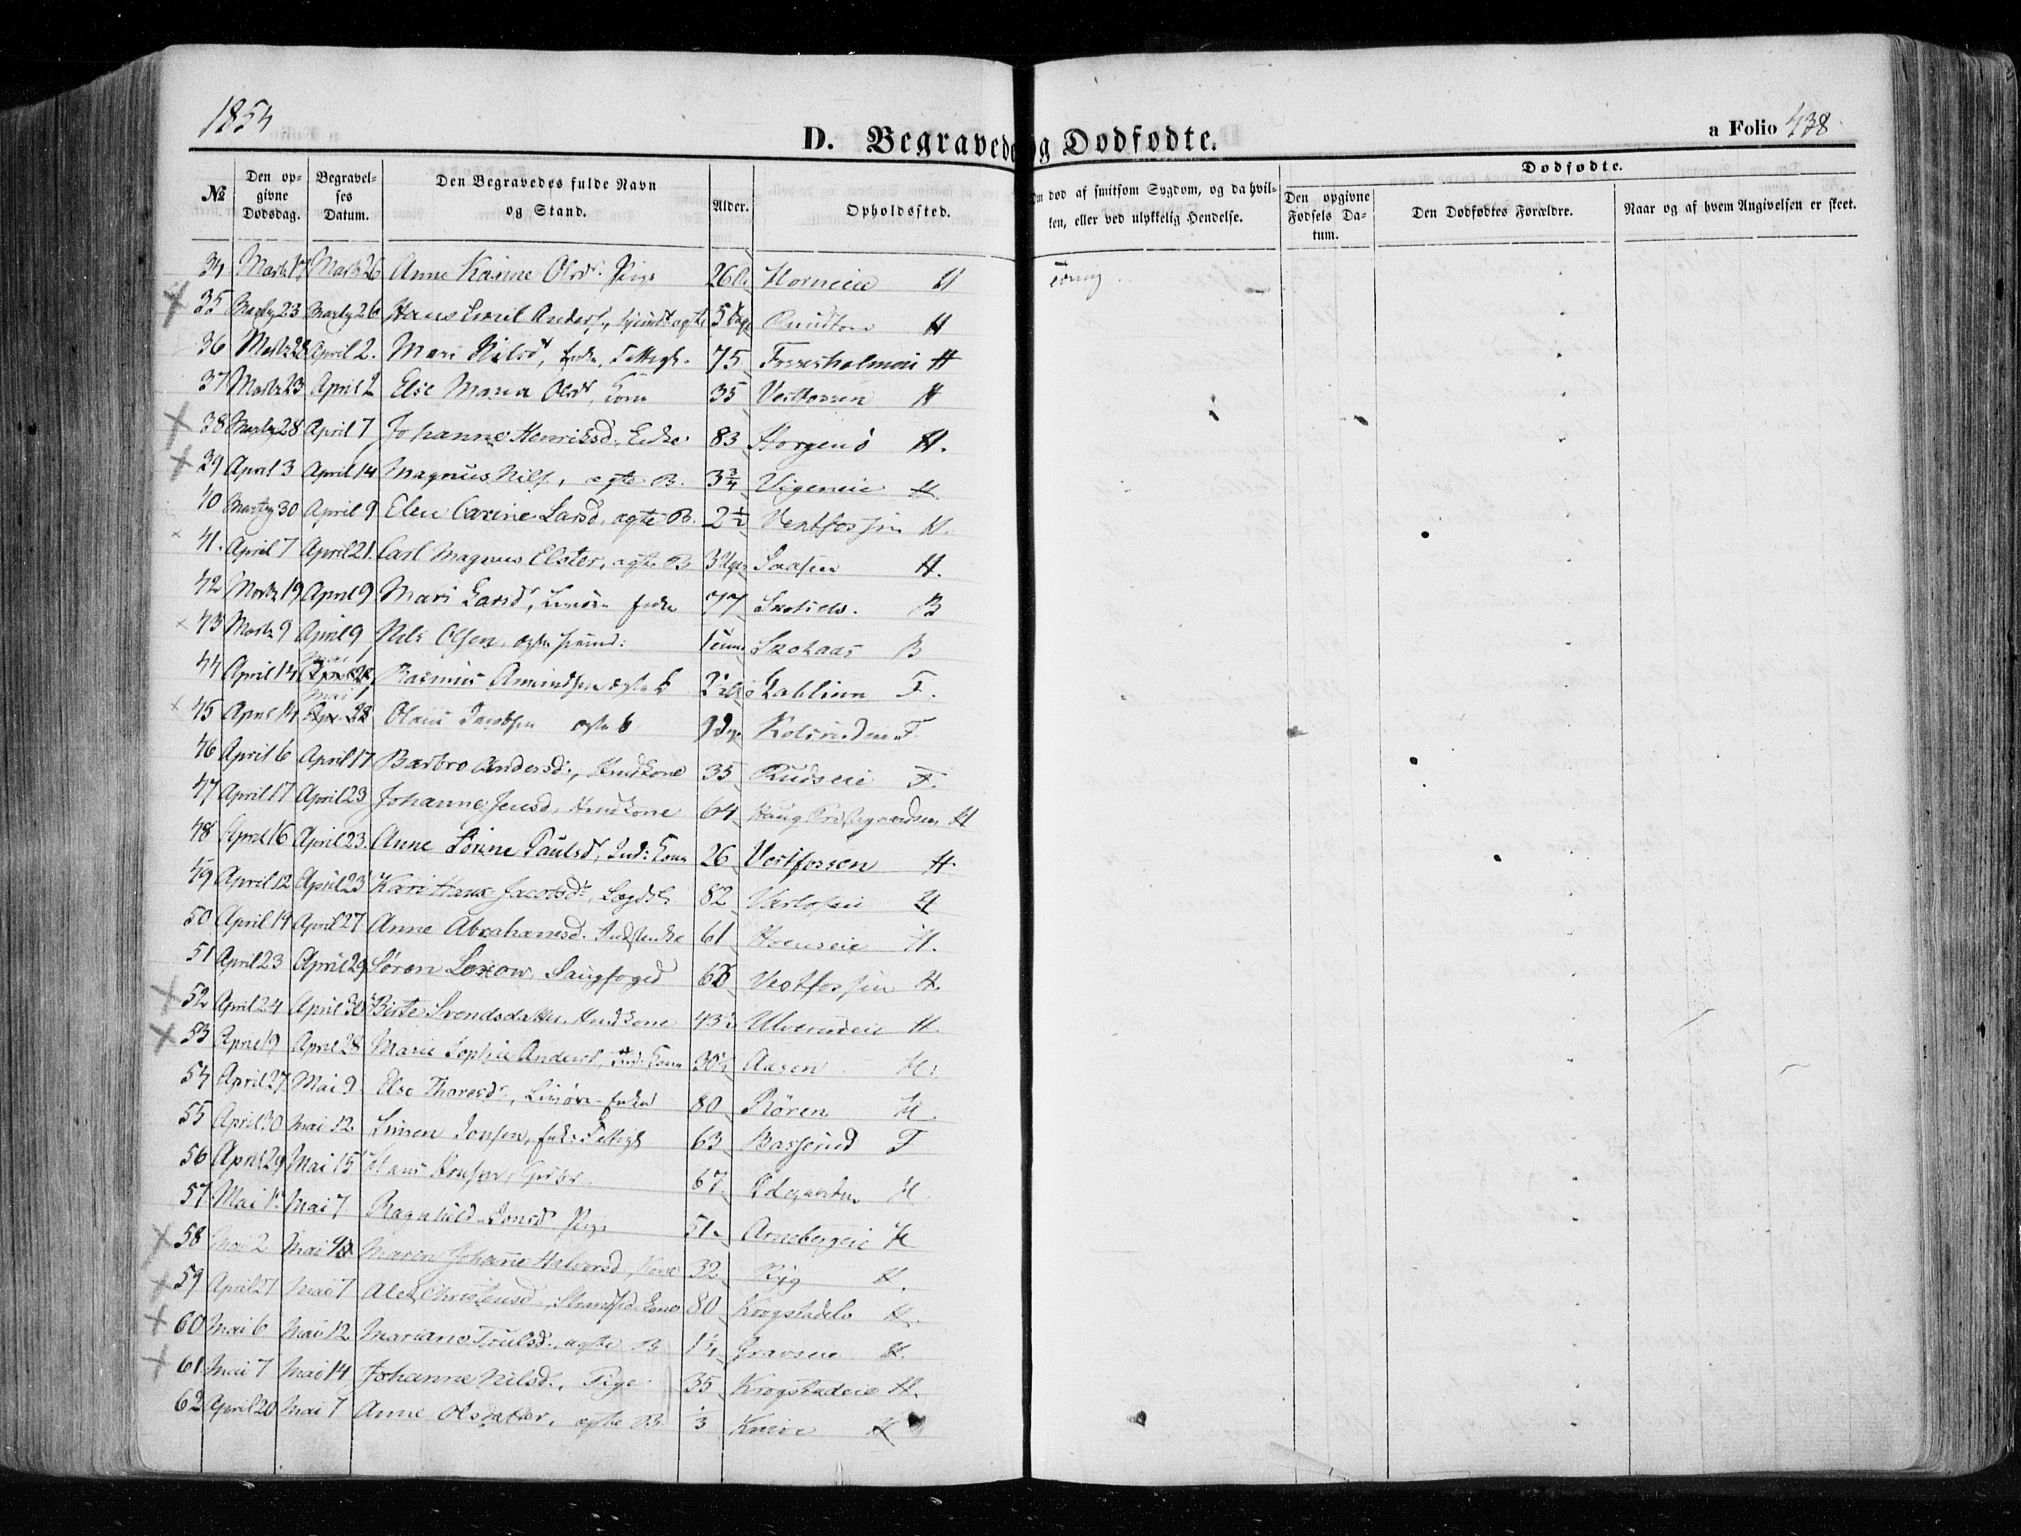 1854
D. Begravede og Dødfødte.
a Folio 438
Dødfødte.
№ Den opgivne Dødsdag. Begravelses Datum. Den Begravedes fulde Navn og Stand. Alder. Opholdssted. Om død af smitsom Sygdom, og da hvilken, eller ved ulykkelig Hendelse. Den opgivne Fødsels Datum. Den Dødfødtes Forældre. Naar og af hvem Angivelsen er skeet.
34 Marts 17 Marts 26 Anne Karine Olsd. Pige 26 Horneie H
35 Marts 23 Marts 26 Hans Emil Anders. 5 Dage H
36 Marts 28 April 2. Mari Nilsd, 75 H
37 Marts 23 April 2 Else Maria Olsd, Kone 35 Vestfossen H
38 Marts 28 April 7 Johanne Henriksd. Enke 83 Horgenø H.
39 April 3 April 14 Magnus Nils., ægte B. 3 3/4 Vigeneie H
40 Marts 30 April 9 Elen Caxine Larsd, ægte B. 2 1/2 Vestfossen H.
41. April 7 April 21. Carl Magnus Elster, ægte B 3 Uger H.
42 Marts 19 April 9 Mari Larsd, 77 B
43 Marts 9 April 9 Nils Olsen, Skotaas B
44 April 14 Mai 1 Rasmus Amundsen ægte F.
45 April 14 Mai 1 Olaus Jacobsen ægte b F.
46 April 6 April 17 Barbro Andersd., Indkone 35 Rudseie F.
47 April 17 April 23 Johanne Jensd, Indkone 64 Haug H
48 April 16 April 23. Anne Paulsd, Ind: Kone 26 Vestfossen H.
49 April 12 April 23 Kari Hans Jacobsd, Lægdsl. 82 H
50 April 19 April 27 Anne Abrahamsd. Ind Enke 61 Hoenseie H.
51 April 23 April 29 Søren Loxow, Saugfoged Vestfossen H.
52 April 24 April 30 Birte Svendsdatter, Indkone 43 1/2 Ulverudeie H.
53 April 19 April 28 Marie Sophie Anders, Ind: Kone 30 1/2 Aasen H.
54 April 27 Mai 9 Else Thoresd, 80 Rören H.
55 April 30 Mai 12. Simen Jonsen, 63 Basserud F
56 April 29 Mai 15 Hans 67. Ødegaarden H
57. Mai 1 Mai 7 Ragnhild Jonsd Pige 51 Arnebergeie H
58 Mai 2 Mai Maren Johanne Halvorsd, Kone 32 Ryg H.
59 April 27 Mai 7 Christensd, Kone 80 Krogstadelv H.
60 Mai 6 Mai 12 Mariane Trulsd., ægte B 1 1/4 Gravseie H.
61 Mai 7 Mai 14 Johanne Nilsd., Pige 35 Krogstadeie H.
62 April 20 Mai 7 Anne Olsdatter, ægte B. 1/3 H